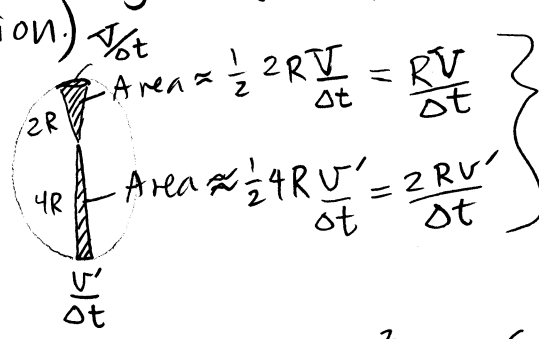 ion.)
V/Δt
2R
Area ≈ 1/2 2R V/Δt = RV/Δt
4R
Area ≈ 1/2 4R v'/Δt = 2Rv'/Δt
v'/Δt